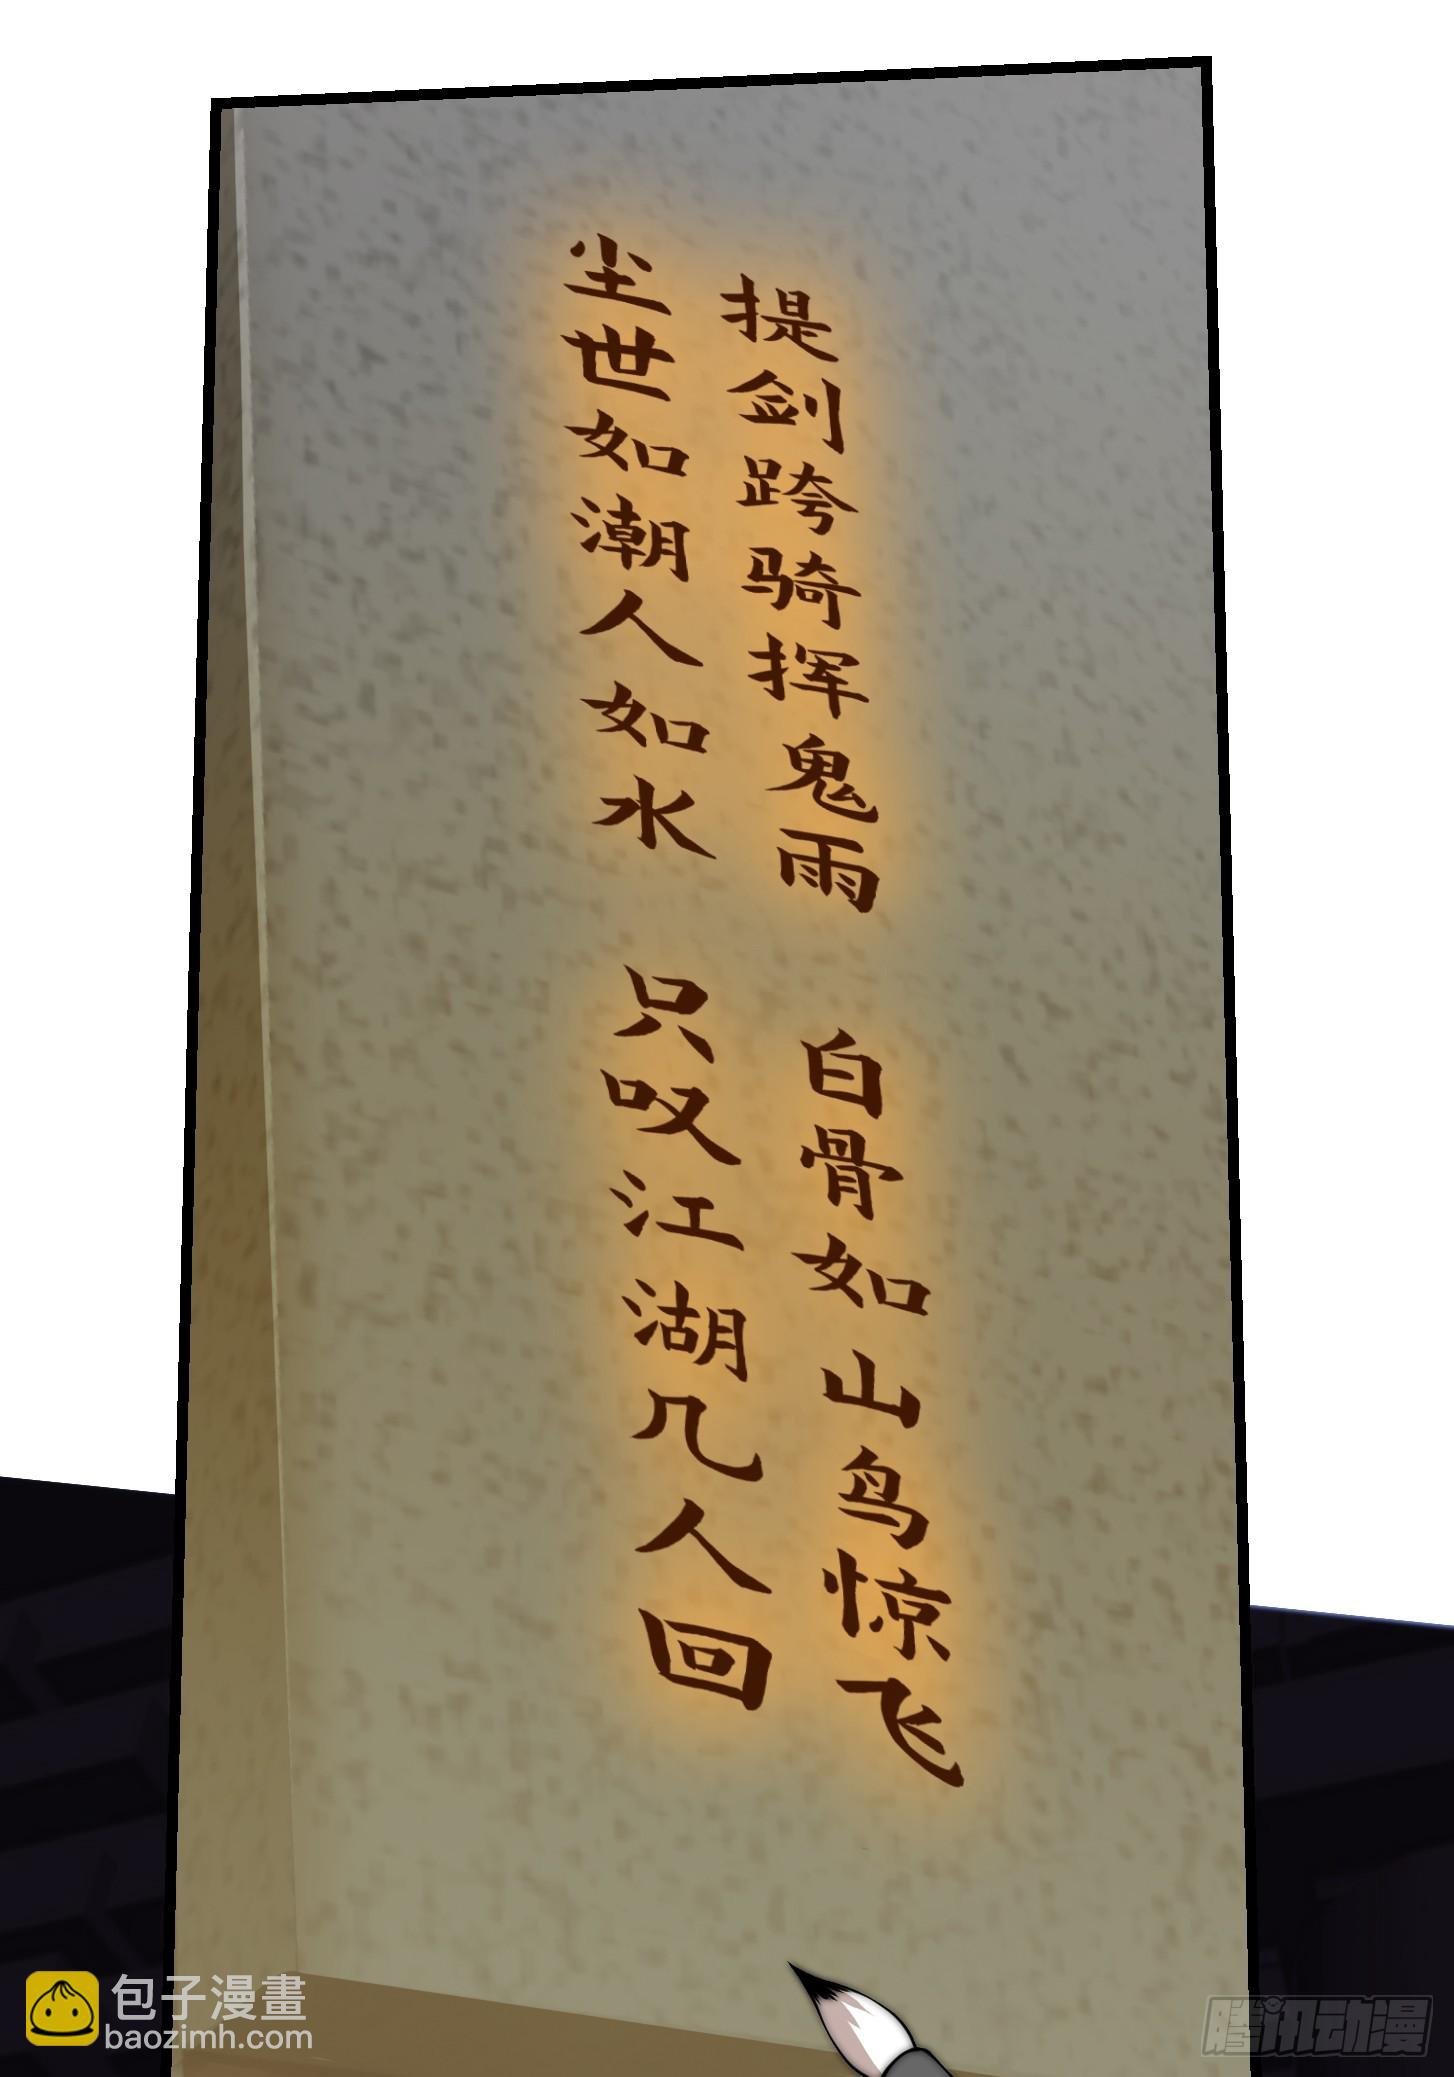 提剑跨骑挥鬼雨
白骨如山鸟惊飞
尘世如潮人如水
只叹江湖几人回
包子漫畫
baozimh.com
腾讯动漫